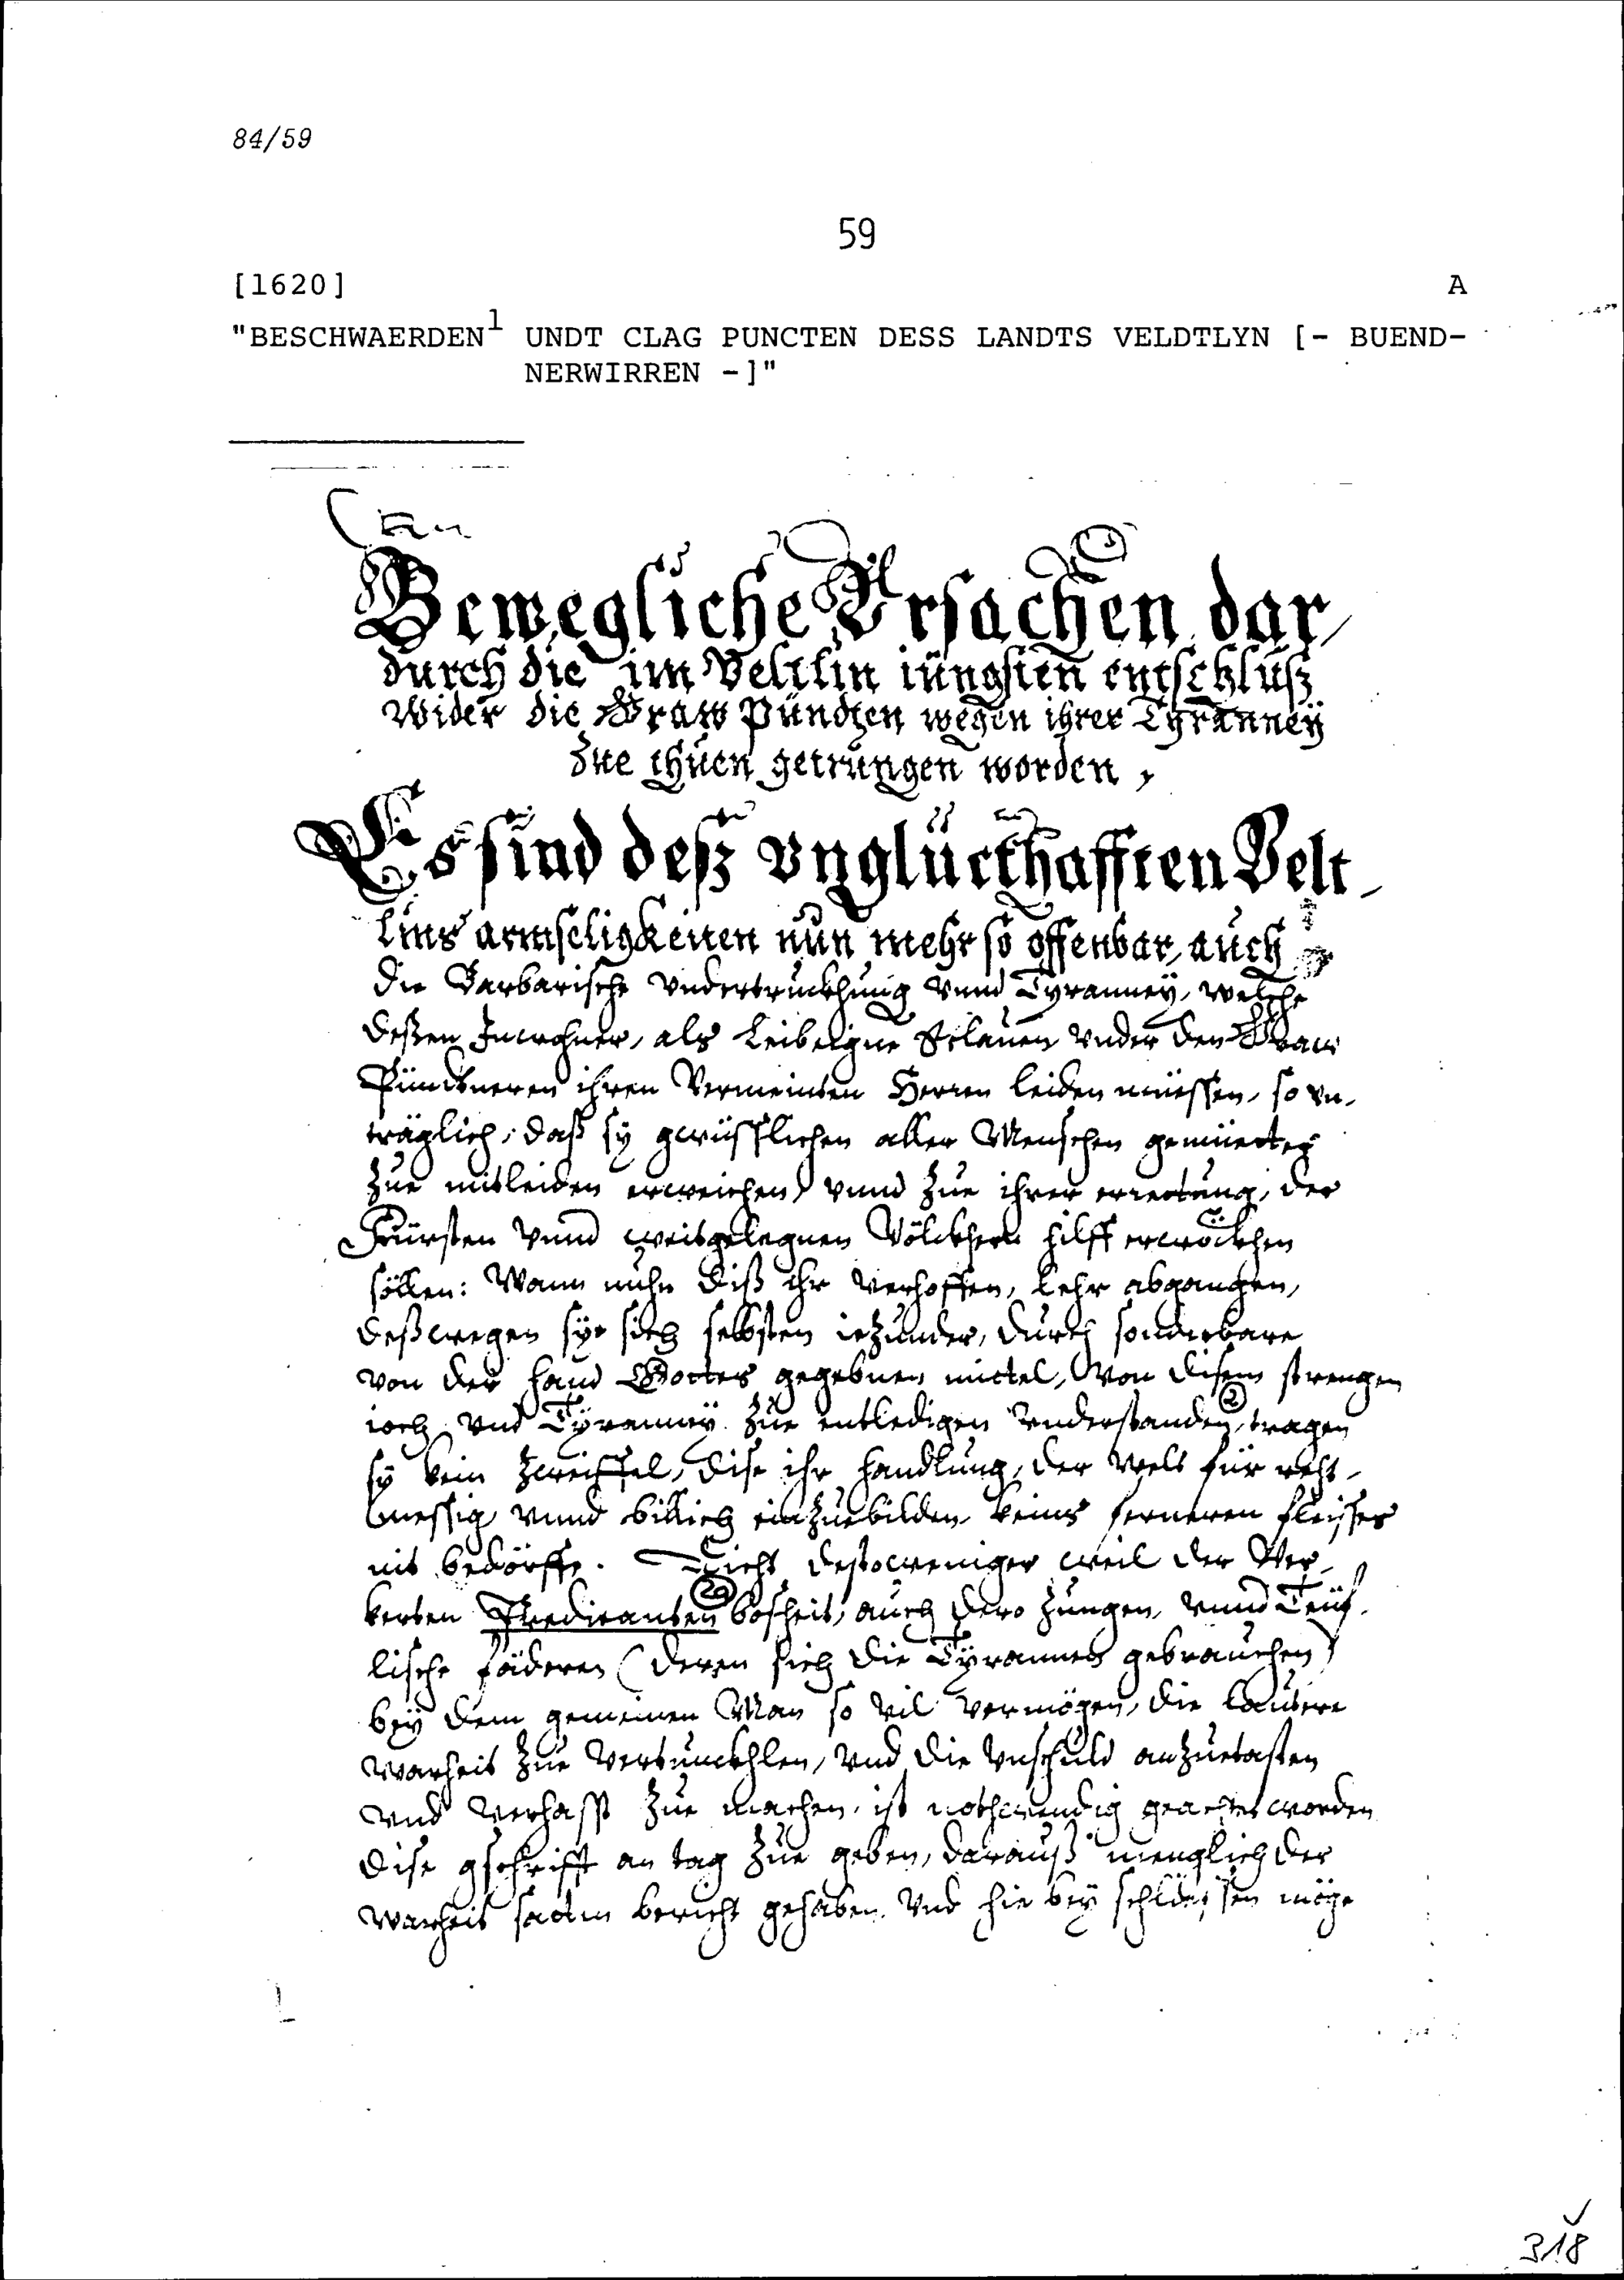 84/59
59
[1620] A
"BESCHWAERDEN1 UNDT CLAG PUNCTEN DESS LANDTS VELDTLYN [- BUEND-
NERWIRREN -]"
Bewegliche Ursachen dar,
durch die im Veltlin iüngsten entschluß
Wider die Graw Pündten wegen ihrer Tyranney
Zue thuen getrungen worden,
Es sind deß vnglückhafften Velt-
lins armseligkeiten nun mehr so offenbar, auch
die Barbarische vndertruckhung vnnd Tyranney, welche
deßen Inwohner, als Leibeigne Sclauen vnder den Graw
Pündtneren ihren vermeinten Herren leiden müessen, so vn-
träglich, daß sy gwüßlichen aller Menschen gemüetter
Zue mitleiden erweichen, vnnd Zue ihrer errettung, der
Fürsten vnnd weitgelegnen Völckhern hilff erwöckhen
söllen: Wann nuhn diß ihr verhoffen, lehr abgangen,
deßwegen sye sich selbsten ietzunder, durch sonderbare
von der hand Gottes gegebnen mittel, Von disem strengen
ioch vnd Tyranney Zue entledigen vnderstanden, 2 tragen
sy kein Zweiffel, dise ihr handlung, der Welt für reht-
messig vnnd billich einZuebilden, keins ferneren fleisses
nit bedörffe. Nicht destoweniger weil der Ver-
kerten Predicanten 2a bosheit, auch dero Zungen, vnnd Teüf-
lische fäderen (deren sich die Tyrannen gebrauchen)
bey dem gemeinen Man so vil vermögen, die lautere
Warheit Zue vertunckhlen, vnd die vnschuld anZuetasten
vnd verhasst Zue machen, ist nothwendig geachtet worden
dise gschrifft an tag Zue geben, darauß menglich der
Warheit satten bericht gehaben. Vnd hie bey schliessen möge
318